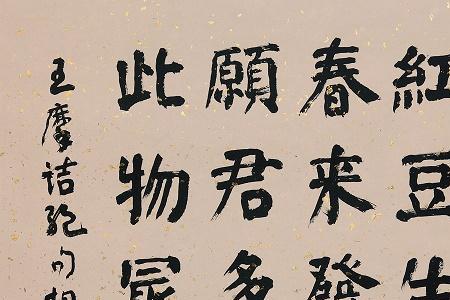 紅豆生
春来發
願君多
此物最
王摩詰絶句相